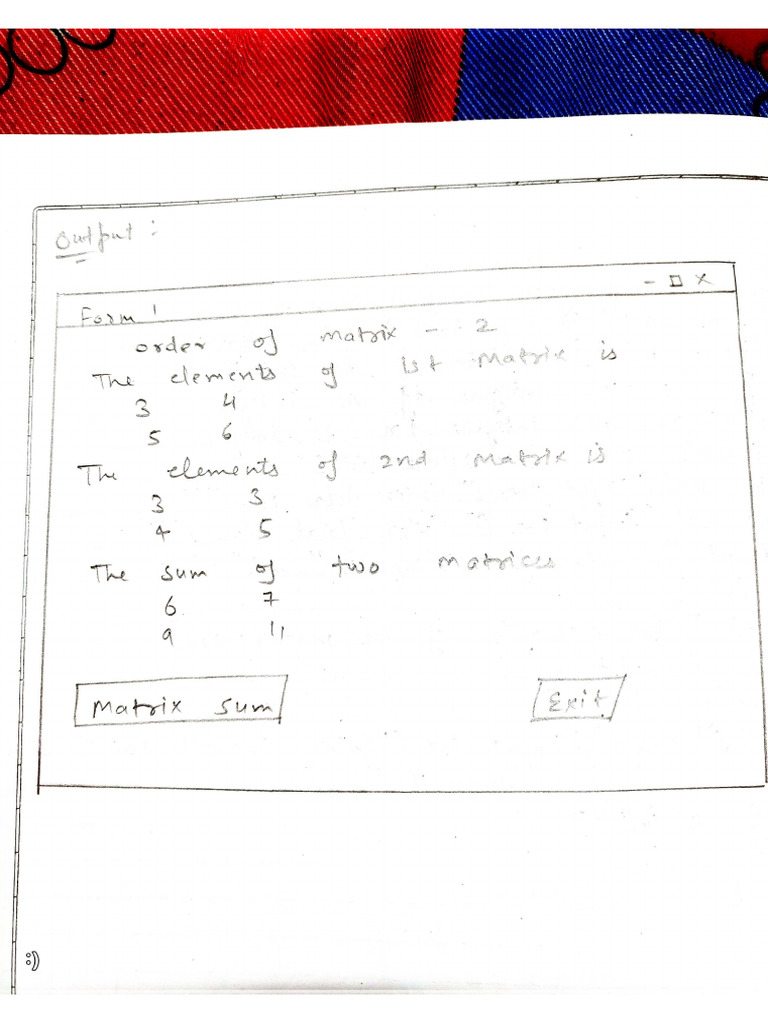 Output :
- □ X
Form 1
order of matrix - 2
The elements of 1st Matrix is
3 4
5 6
The elements of 2nd Matrix is
3 3
4 5
The sum of two matrices
6 7
9 11
Matrix sum Exit
:)